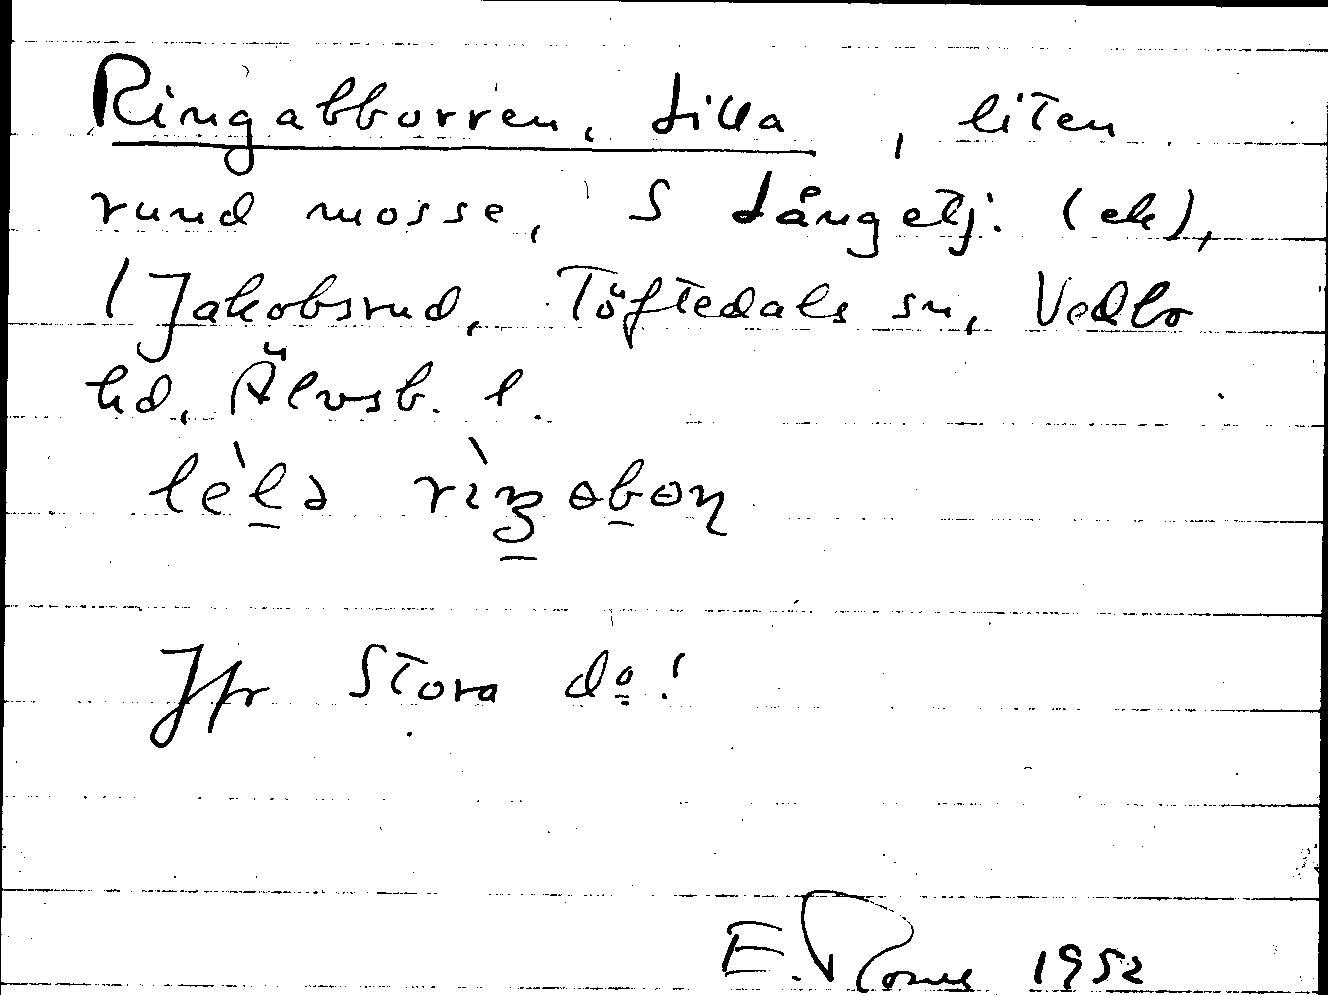 Ringabborren, Lilla, liten
rund mosse, S Långetj. (ek),
/ Jakobsrud, Töftedals sn, Vedbo
hd, Älvsb. l.
Jfr Stora do!
E. 1952